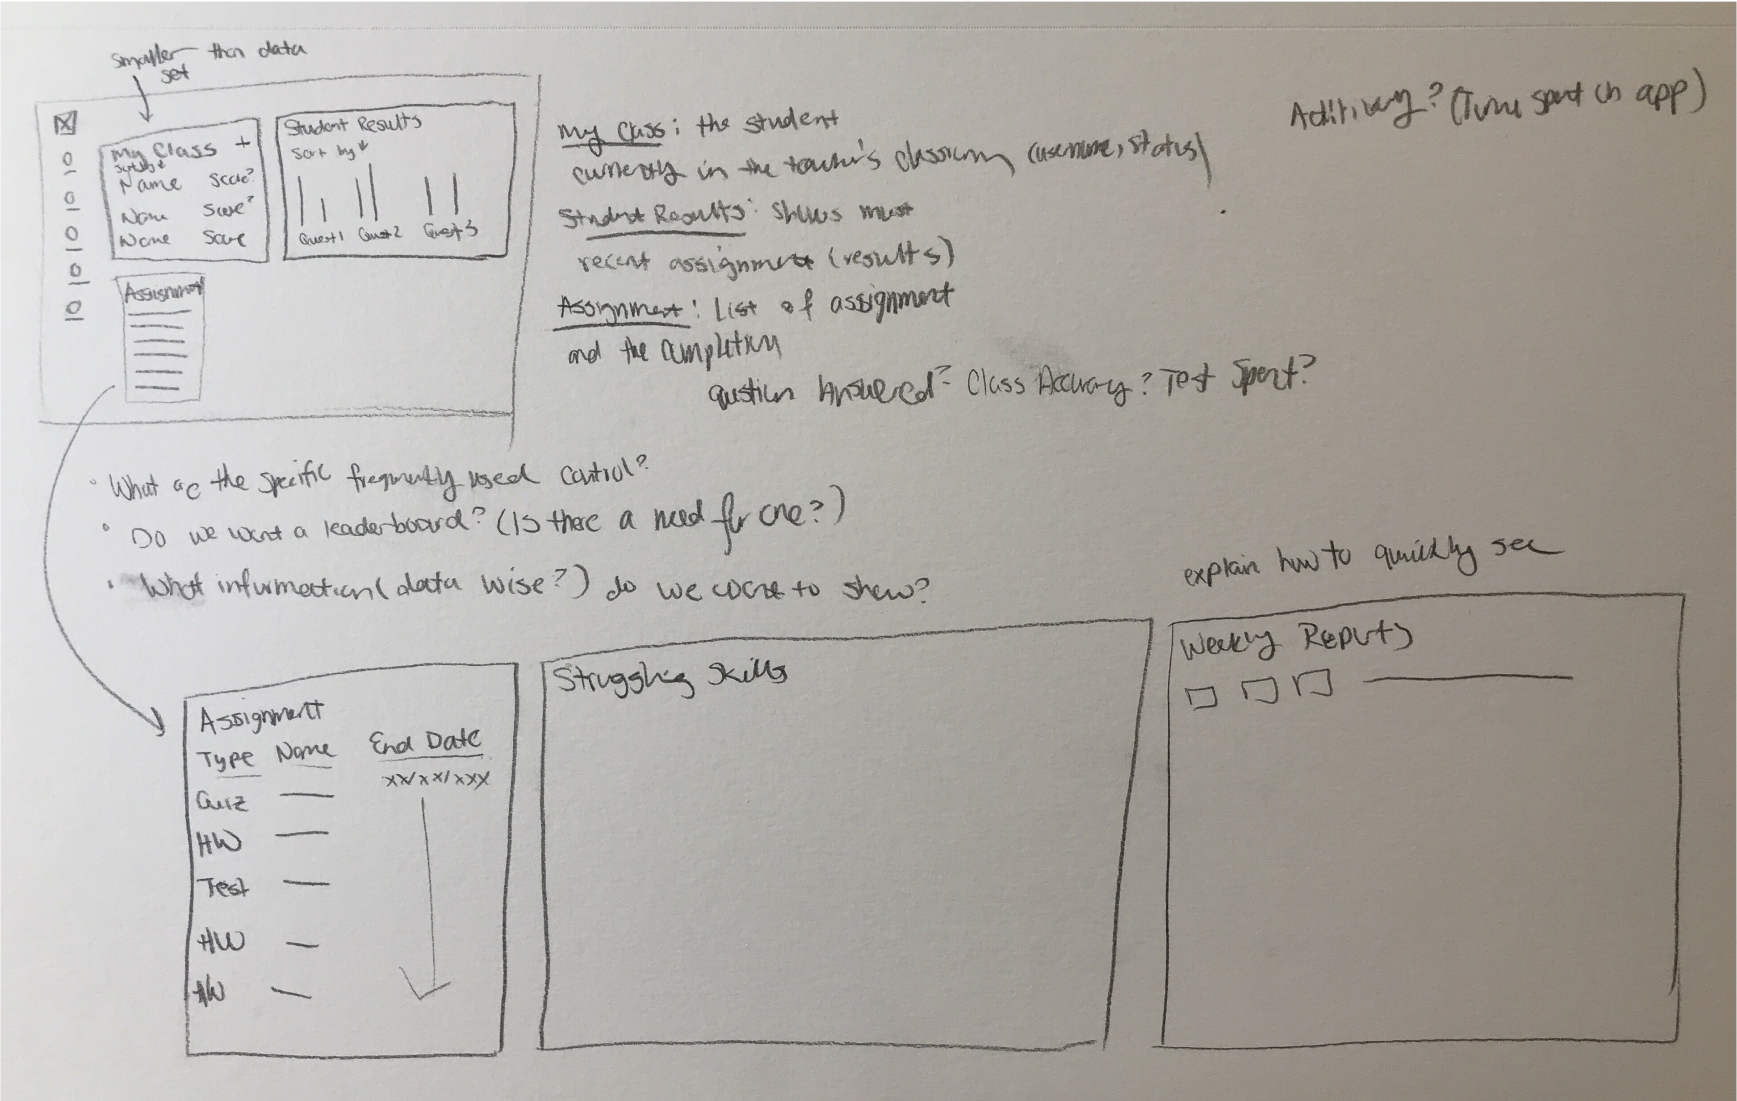 smaller than data
set
My Class +
Sort by
Name Score?
Name Score?
Name Score
Student Results
Sort by
Quest 1 Quest 2 Quest 3
Assignment
My Class: the student
currently in the teacher's classroom (username, status)
Student Results: shows most
recent assignment (results)
Assignment: List of assignment
and the completion
question Answered? Class Accuracy? Test Spent?
(Time spent on app)
• What are the specific frequently used control?
• Do we want a leaderboard? (Is there a need for one?)
• What information (data wise?) do we want to show?
Assignment
Type Name End Date
xx/xx/xxx
Quiz
HW
Test
HW
HW
Struggling Skills
explain how to quickly see
Weekly Reports